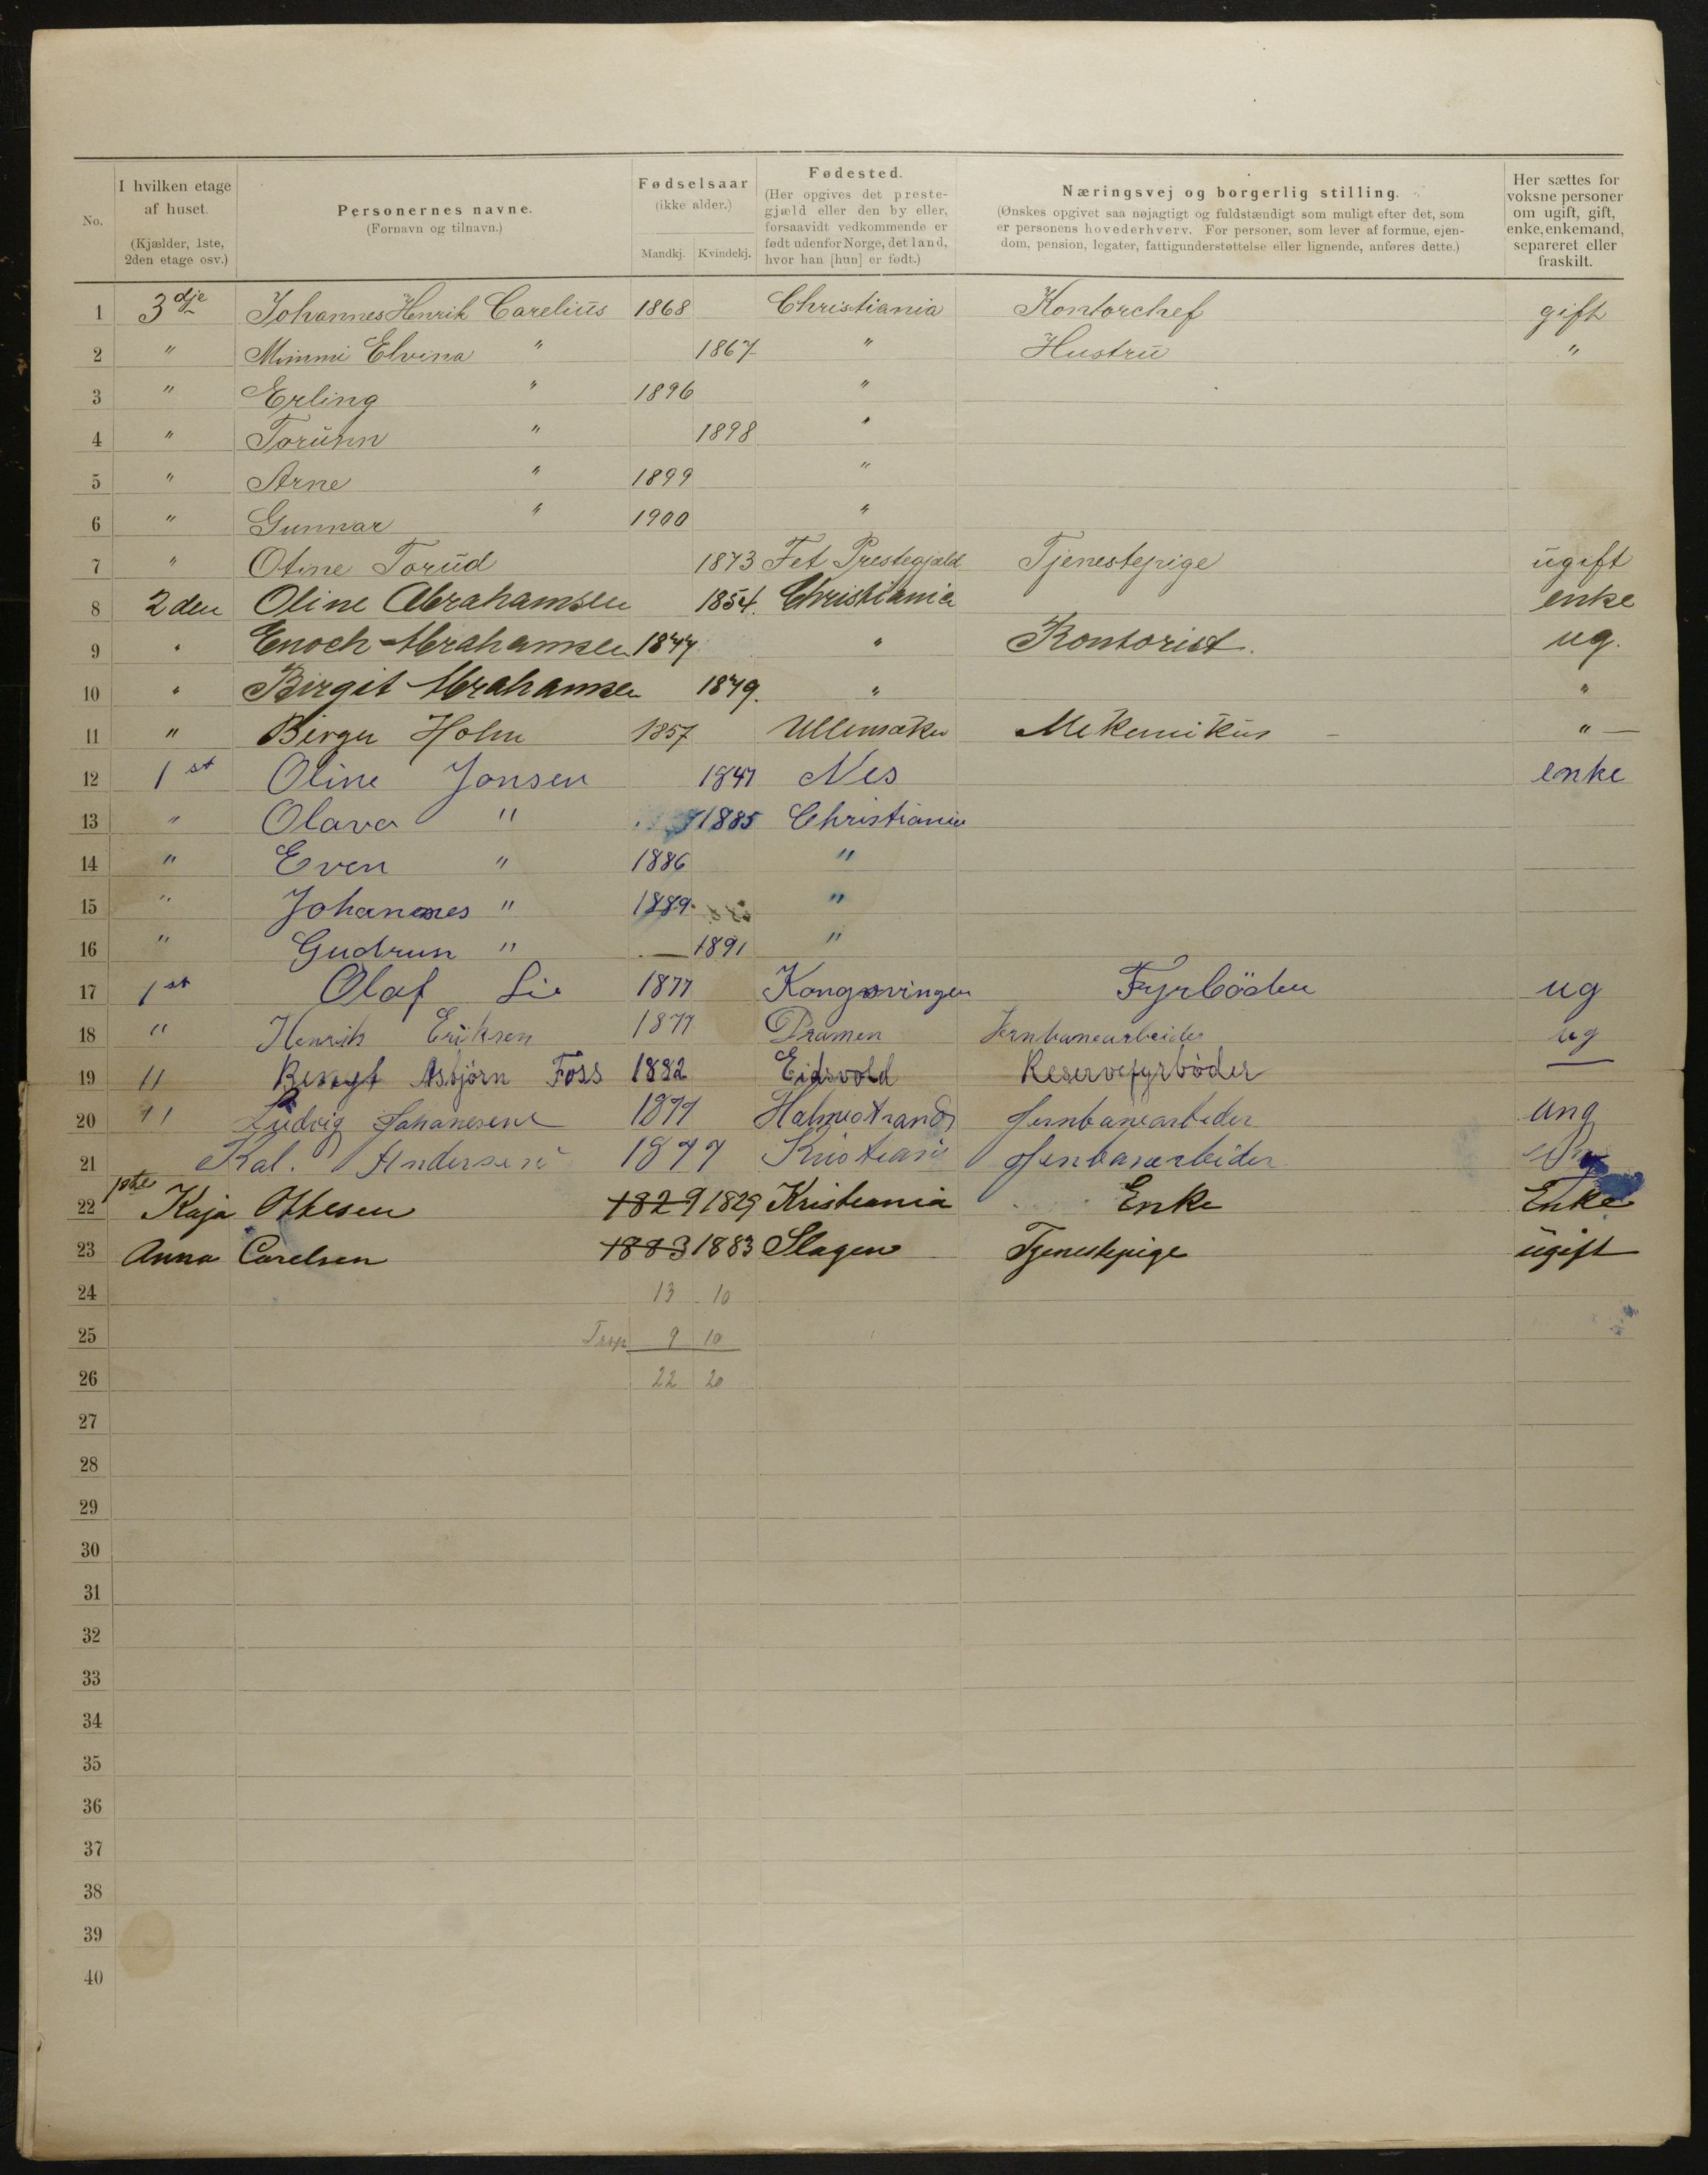 No.
I hvilken etage af huset. (Kjælder, 1ste, 2den etage osv.)
Personernes navne. (Fornavn og tilnavn.)
Fødselsaar (ikke alder.) Mandkj. Kvindekj.
Fødested. (Her opgives det prestegjæld eller den by eller, forsaavidt vedkommende er født udenfor Norge, det land, hvor han [hun] er født.)
Næringsvej og borgerlig stilling. (Ønskes opgivet saa nøjagtigt og fuldstændigt som muligt efter det, som er personens hovederhverv. For personer, som lever af formue, ejendom, pension, legater, fattigunderstøttelse eller lignende, anføres dette.)
Her sættes for voksne personer om ugift, gift, enke, enkemand, separeret eller fraskilt.
1 3dje Johannes Henrik Carelius 1868 Christiania Kontorchef gift
2 " Mimmi Elvina " 1867 " Hustru "
3 " Erling " 1896 "
4 " Torunn " 1898 "
5 " Arne " 1899 "
6 " Gunnar " 1900 "
7 " Otine Torud 1873 Fet Prestegjæld Tjenestepige ugift
8 2den Oline Abrahamsen 1854. Christiania enke
9 " Enoch Abrahamsen 1877 " Kontorist. ug.
10 " Birgit Abrahamsen 1879. " "
11 " Birger Holm 1857 Ullensaker Mekanikus - " —
12 1st Oline Jonsen 1847 Nes enke
13 " Olava " 1885 Christiania
14 " Even " 1886 "
15 " Johannes " 1889. "
16 " Gudrun " — 1891 "
17 1st Olaf Lie 1877 Kongsvinger Fyrböder ug
18 " Henrik Eriksen 1877 Dramen Jernbanearbeider ug
19 " Bengt Asbjörn Foss 1882 Eidsvold Reservefyrbøder —
20 " Ludvig Johanesene 1877 Holmestrand Jernbanearbeder ung
21 Kal. Andersen 1877 Kristiani Jenbanarbeider
22 1ste Kaja Ottesen 1829 1829 Kristiania Enke Enke
23 Anna Carelsen 1883 1883 Slagen Tjenestepige ugift
24 13 10
25 Trsp 9 10
26 22 20
27
28
29
30
31
32
33
34
35
36
37
38
39
40